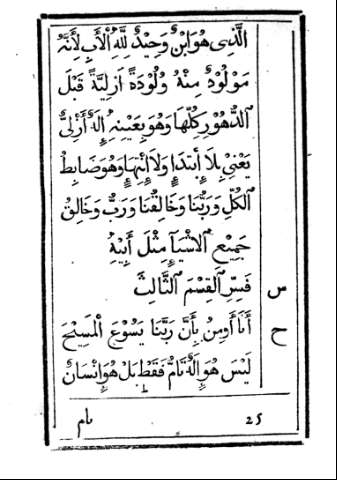 الَّذِى هُوَ ابْنٌ وَحِيدٌ لِلّٰهِ الْأَبِ لِأَنَّهُ
مَوْلُودٌ مِنْهُ وُلُودَةً اَزلِيَّةً قَبْلَ
الدُّهُورِ كُلِّهَا وَهُوَ بِعَيْنِهِ إِلَهٌ أَزْلِىٌّ
يَعْنِى بِلَا أِبتدَاءٍ وَلَا إِنْتِهَاءٍ وَهُوَ ضَابِطُ
الْكُلِّ وَرَبُّنَا وَخَالِقُنَا وَرَبُّ وَخَالِقُ
جَمِيْعِ الاشْيَآءِ مِثْلَ أَبِيْهِ
س فَسِّرِ الْقِسْمَ الثَّالِثَ
ح أَنَا أُومِنُ بِأَنَّ رَبَّنَا يَسُوْعَ الْمَسِيْحَ
لَيْسَ هُوَ إِلَهٌ تَامٌّ فَقَطْ بَلْ هُوَ إِنْسَانٌ
تام 25